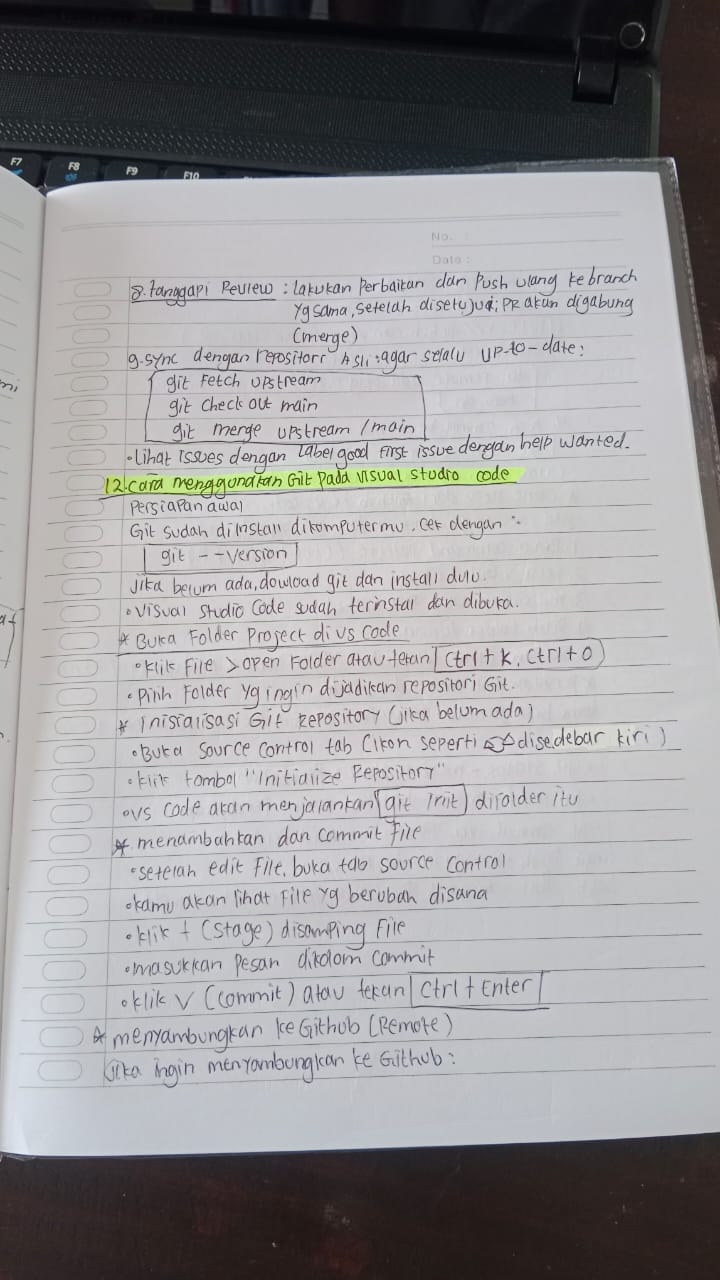 F7 F8 F9 F10
No. :
Date :
8. tanggapi Review : lakukan Perbaikan dan Push ulang ke branch
Yg sama, setelah disetujui, PR akan digabung
(merge)
9. sync dengan repositori Asli : agar selalu UP-to-date:
git Fetch upstream
git check out main
git merge upstream /main
• lihat Issues dengan Label good First issue dengan help wanted.
12. cara menggunakan Git Pada Visual Studio code
Persiapan awal
Git sudah diinstall dikomputermu. cek dengan :
git --version
Jika belum ada, dowload git dan install dulu.
• Visual Studio Code sudah terinstal dan dibuka.
* Buka Folder Project di vs code
• klik File > open Folder atau tekan Ctrl + K, Ctrl + O
• Pilih Folder yg ingin dijadikan repositori Git.
* Inisialisasi Git Repository (jika belum ada)
• Buka Source Control tab (ikon seperti disedebar kiri)
• klik tombol "Initialize Repository"
• vs code akan menjalankan git init difolder itu
* menambahkan dan commit file
• setelah edit File, buka tab source control
• kamu akan lihat File yg berubah disana
• klik + (stage) disamping File
• masukkan pesan dikolom commit
• klik V (commit) atau tekan Ctrl + Enter
* menyambungkan ke Github (Remote)
Jika ingin menyambungkan ke Github :